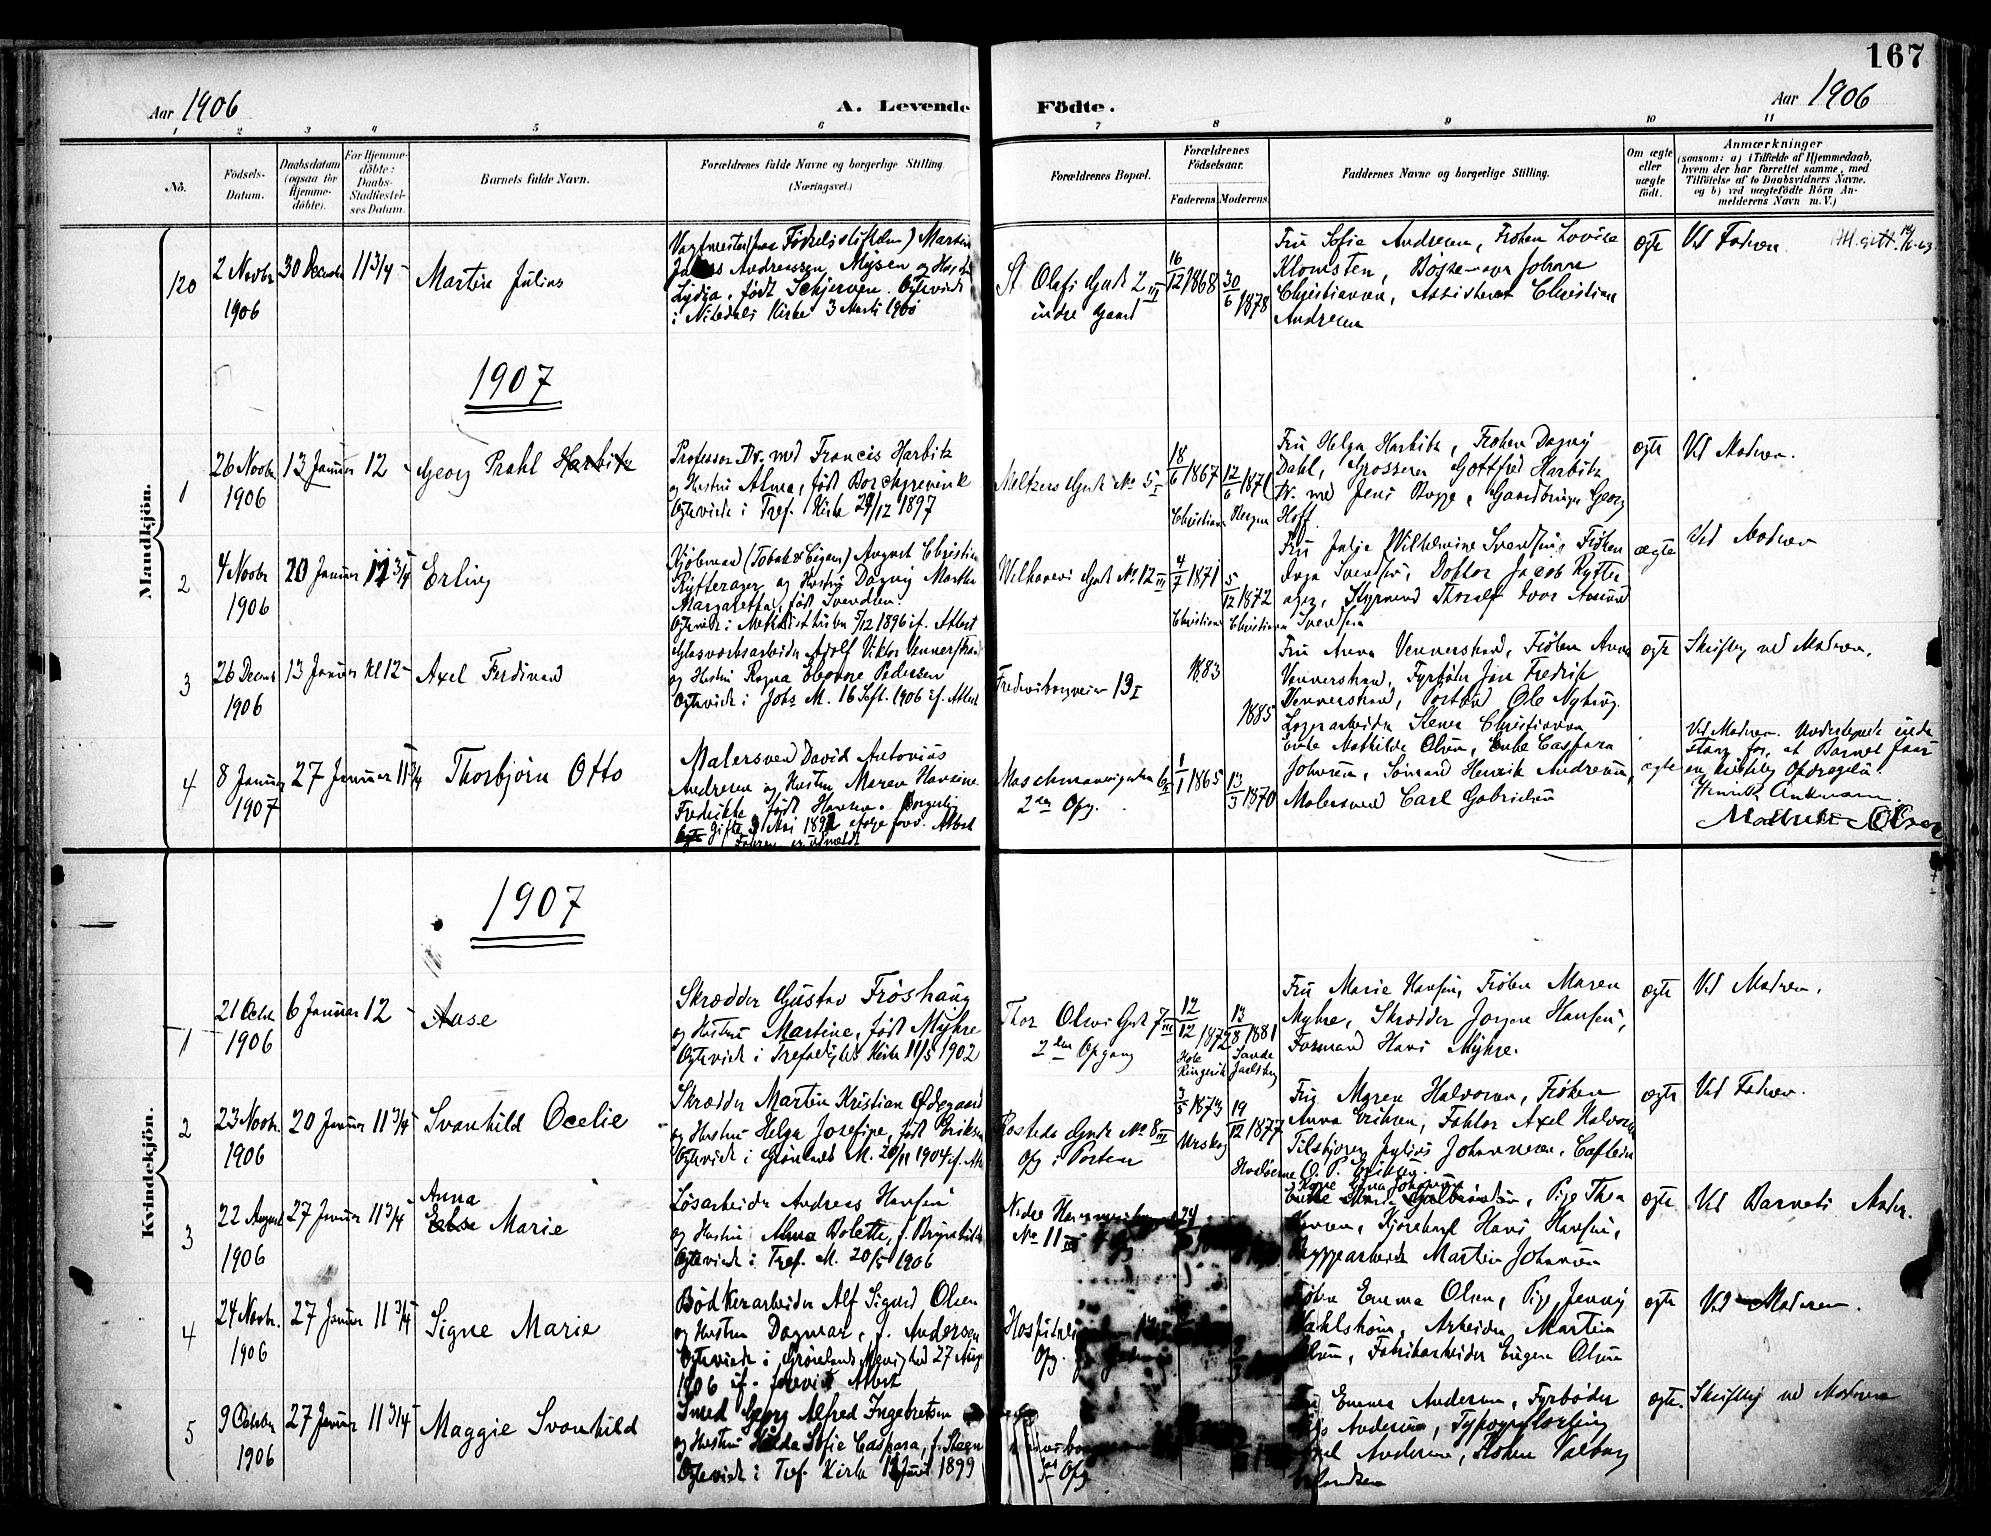 167
Aar 1906
A. Levende Födte.
Aar 1906
1 2 3 4 5 6 7 8 9 10 11
No.
Födsels-Datum.
Daabsdatum (ogsaa för Hjemme-döbte).
For Hjemme-döbte: Daabs-Stadfæstel-ses Datum.
Barnets fulde Navn.
Forældrenes fulde Navne og borgerlige Stilling.
(Næringsvei.)
Forældrenes Bopæl.
Forældrenes Födselsaar.
Faderens Moderens
Faddernes Navne og borgerlige Stilling.
Om ægte eller uægte födt.
Anmærkninger
(saasom: a) i Tilfælde af Hjemmedaab,
hvem der har forrettet samme, med
Tilföielse af to Daabsvidners Navne,
og b) ved uægtefödte Börn An-
melderens Navn m. V.)
Mandkjön.
120
2 Novbr 1906
30 Decemb
11 3/4
Martin Julius
Andreassen, Mysen og
Lydia, født Schjerven. Ægteviede
i Nitedals Kirke 3 Marts 1900
St. Olafs Gade 2 III
indre Gaard
16/12 1868
30/6 1878
Fru Sofie Andresen, Frøken Lovise
Klomsten,
Christiansen, Assistent Christian
Andresen
ægte
Ved Faderen.
1907
1
26 Novbr 1906
13 Januar
12
Georg Prahl Harbitz
Professor Dr. med Francis Harbitz
og Hustru Alma, født Borchgrevink
Ægteviede i Tref. Kirke 29/12 1897
Meltzers Gade No 5 I
18/6 1867
Christiania
12/6 1871
Bergen
Fru Helga Harbitz, Frøken Dagny
Dahl, Grosserer Gottfred Harbitz
Dr. med Jens Bugge, Gaardbruger Georg
Hoff.
ægte
Ved Moderen.
2
4 Novbr 1906
20 Januar
11 3/4
Erling
Kjøbmand (Tobak & Cigar) August Christian
Rytterager og Hustru Dagny Martha
Margaretha, født Svendsen.
Ægteviede i Methodistkirken 5/12 1896 if. Attest
Wilhelms Gade No 12 III
4/7 1871
Christiania
5/12 1872
Christiania
Fru Julie Wilhelmine Svendsen, Frøken
Inga Svendsen, Doktor Jacob Rytter
ager, Styrmand Thoralf Ivar Amund
Svendsen
ægte
Ved Moderen
3
26 Decemb 1906
13 Januar
kl 12
Axel Ferdinand
Glasværksarbeider Adolf Viktor Vennerstrand
og Hustru Ragna Eleonore Pedersen
Ægteviede i Johs M. 16 Sept. 1906 if. Attest
Fredensborgveien 13 I
1883
1885
Fru Anna Vennerstrand, Frøken Anna
Vennerstrand, Fyrbøder Jon Fredrik
Vennerstrand, Portbud Ole Nyborg.
ægte
Skriftlig ved Moderen.
4
8 Januar 1907
27 Januar
11 3/4
Thorbjørn Otto
Malersvend David Antonius
Andresen og Hustru Maren Hansine
Fredrikke, født Hansen. Borgerlig
Gifte 9 Mai 1892 ifølge forev. Attest
Faderen er udmeldt
2den Opg.
1/1 1865
13/3 1870
Enke Mathilde Olsen, Enke Caspara
Johnsen, Sømand Henrik Andresen,
Malersvend Carl Gabrielsen
ægte
Ved Moderen. Undertegnede inde
staar for, at Barnet faar
en kristelig Opdragelse.
Mathilde Olsen
Kvindekjön.
1907
1
21 Octbr 1906
6 Januar
12
Aase
Skrædder Gustav Frøshaug
og Hustru Martine, født Myhre
Ægteviede i Trefoldigheds Kirke 11/5 1902
Thor Olsens Gade 7 III
2den Opgang
12/12 1872
Hole Ringerike
13/8 1881
Sande Jarlsberg
Fru Marie Hansen, Frøken Maren
Myhre, Skrædder Jørgen Hansen,
Formand Hans Myhre.
ægte
Ved Moderen.
2
23 Novbr. 1906
20 Januar
11 3/4
Svanhild Ocelie
Skrædder Martin Kristian Ødegaard
og Hustru Helga Josefine, født Eriksen
Ægteviede i Grønlands M. 20/11 1904 if. Att
Rosteds Gade No 8 III
Opg i Porten
3/5 1873
Urskog
19/12 1877
Hvaløerne
Fru Maren Halvorsen, Frøken
Anna Eriksen, Faktor Axel Halvorsen
Tilskjærer Julius Johannesen,
O. P. Eriksen.
ægte
Ved Faderen.
3
22 August 1906
27 Januar
11 3/4
Anna
Else Marie
Løsarbeider Andreas Hansen
og Hustru Alma Bolette, f.
Ægteviede i Tref. M. 20/5 1906
No 11
24
Pige Thea
Hansen, Kjørekarl Hans Hansen,
Bryggearbeider Martin Johansen
ægte
Ved Barnets Moder.
4
24 Novbr. 1906
27 Januar
11 3/4
Signe Marie
Bødkerarbeider Alf Sigurd Olsen
og Hustru Dagmar, f. Andersen
Ægteviede i Grønlands Menighed 27 Aug
1906 if. forevist Attest
Opg.
Frøken Emma Olsen, Pige Jenny
Wahlstrøm, Arbeider Martin
Olsen, Fabrikarbeider Eugen Olsen
ægte
Ved Moderen.
5
9 Octobr 1906
27 Januar
11 3/4
Maggie Svanhild
Smed Georg Alfred Ingebretsen
og Hustru Hilda Sofie Caspara, f.
Ægteviede i Tref. Kirke Juni 1899
Opg
Fru Emma Andersen, Fyrbøder
Andersen, Typograflærling
Andersen, Frøken Valborg
ægte.
Skriftlig ved Moderen